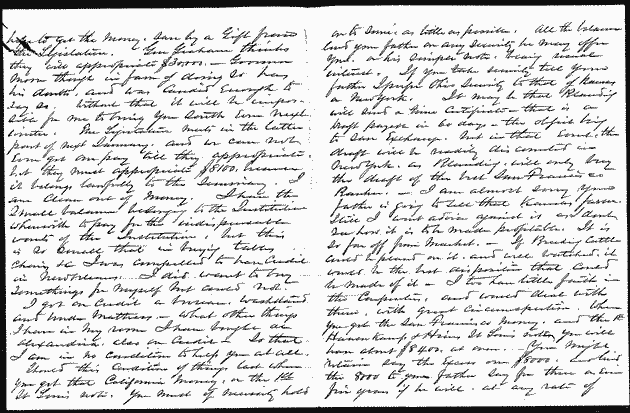 hope to get the money, even by a Gift from
the Legislature. Gen Graham thinks
they will appropriate $30,000. — Governor
Moore though in favor of doing so has
his doubts, and was candid enough to
say so. Without that it will be impos-
sible for me to bring you South even next
winter. The Legislature meets in the latter
part of next January, and we can not
even get our pay till they appropriate,
but they must appropriate $8100, because
it belongs lawfully to the Seminary. I
am clean out of money. I have the
small balance belonging to the Institution
wherewith to pay for the indispensable
wants of the Institution, but this
is so small that in buying tables
chairs &c I was compelled to have Credit
in New Orleans. I did want to buy
something for myself but could not.
I got on credit a bureau, washstand
and under mattress — what other things
I have in my room I have bought at
Alexandria, also on Credit — So that
I am in no condition to help you at all.
Should this condition of things last when
you get that California money, or the
St Louis notes, you must of necessity hold
on to some, as little as possible. All the balance
lend your father on any security he may offer
you, or his simple note, bearing usual
interest. If you take security tell your
father I prefer Ohio Security to that of Kansas
or New York. It may be that Blanding
will send a Mint Certificate — that is a
draft payable in 60 days — the object being
to save Exchange. But in that event, the
draft will be readily discounted in
New York, as Blanding will only buy
the draft of the best San Francisco
Banker. — I am almost sorry your
father is going to sell that Kansas farm.
Still I wont advise against it as I dont
see how it is to be made profitable. It is
so far off from market. — If Breeding Cattle
could be placed on it, and well watched, it
would be the best disposition that could
be made of it — I too have little faith in
the Carpenters, and would deal with
them, with great circumspection. When
you get the San Francisco money, and the
& Hains St Louis notes, you will
have about $8400, at once. You might
retain say the excess over $8000 and lend
this 8000 to your father say for three or even
five years if he will, at any rate of